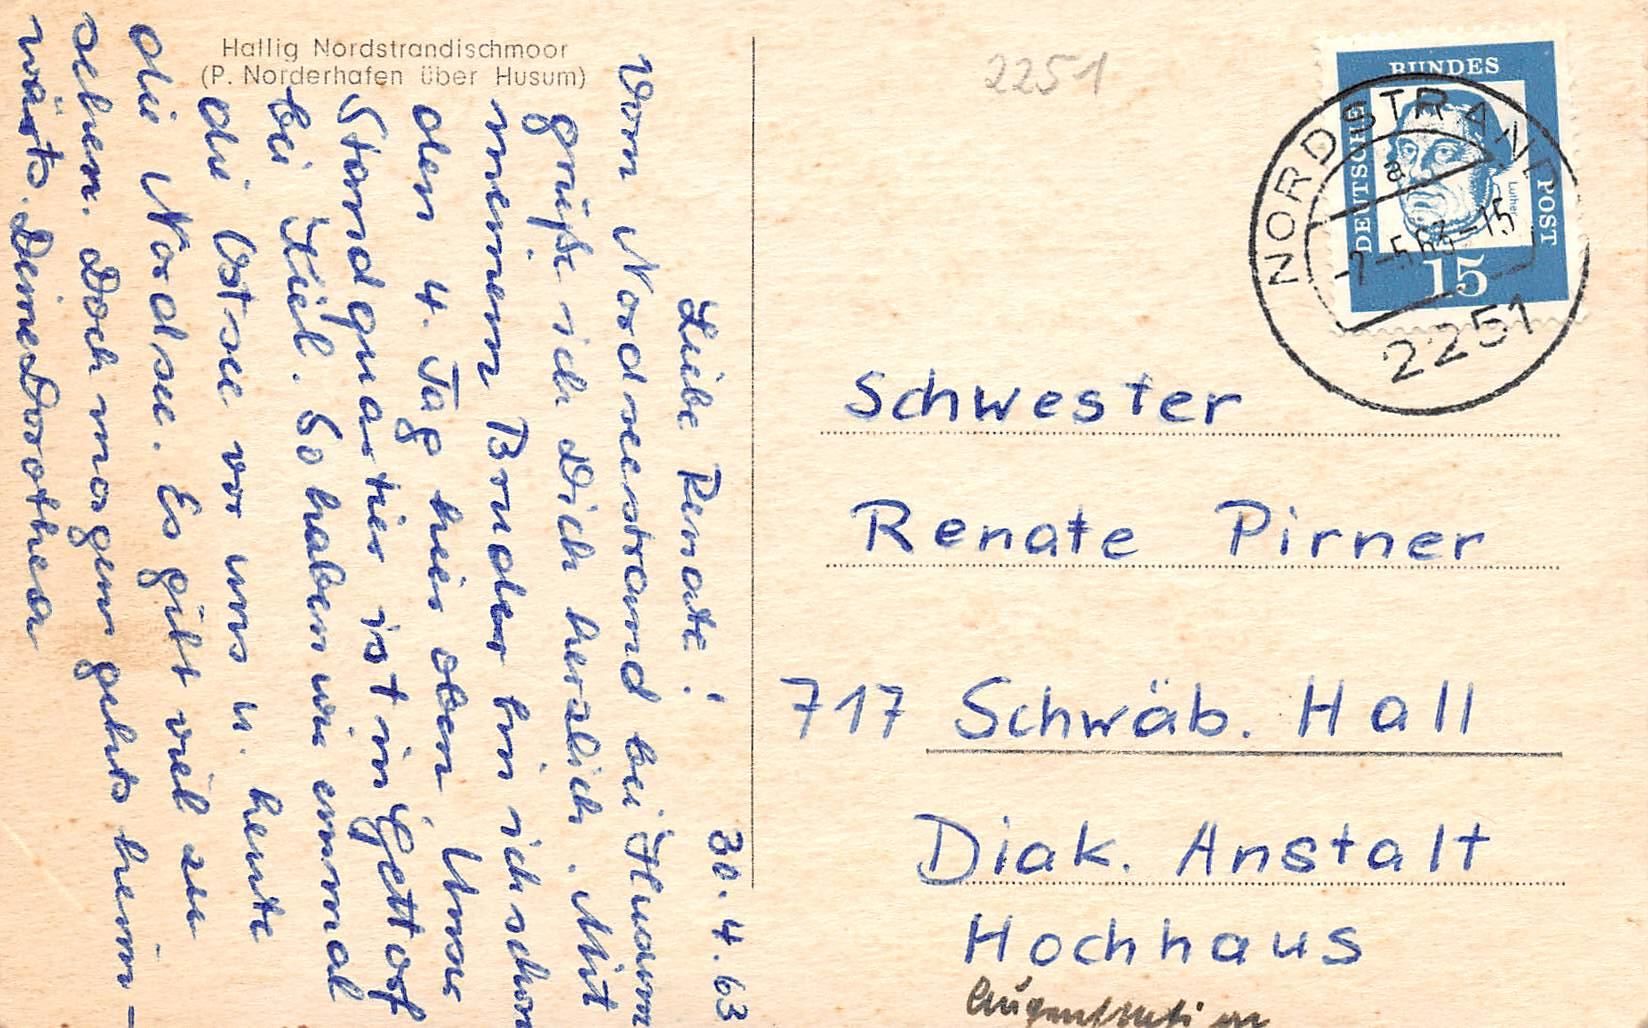 Hallig Nordstrandischmoor
(P. Norderhafen über Husum)
30.4.63
Liebe Renate!
Vom Nordseestrand bei Husum
grüße ich Dich herzlich. Mit
meinem Bruder bin ich schon
den 4. Tag hier oben. Unser
Standquartier ist in Gettorf
bei Kiel. So haben wir einmal
die Ostsee vor uns u. heute
die Nordsee. Es gibt viel zu
sehen. Doch morgen gehts heim-
wärts. Deine Dorothea
2251
BUNDES
DEUTSCHE
POST
Luther
15
NORDSTRAND
a
-2.-5.63-15
2251
Schwester
Renate Pirner
717 Schwäb. Hall
Diak. Anstalt
Hochhaus
Augenstation